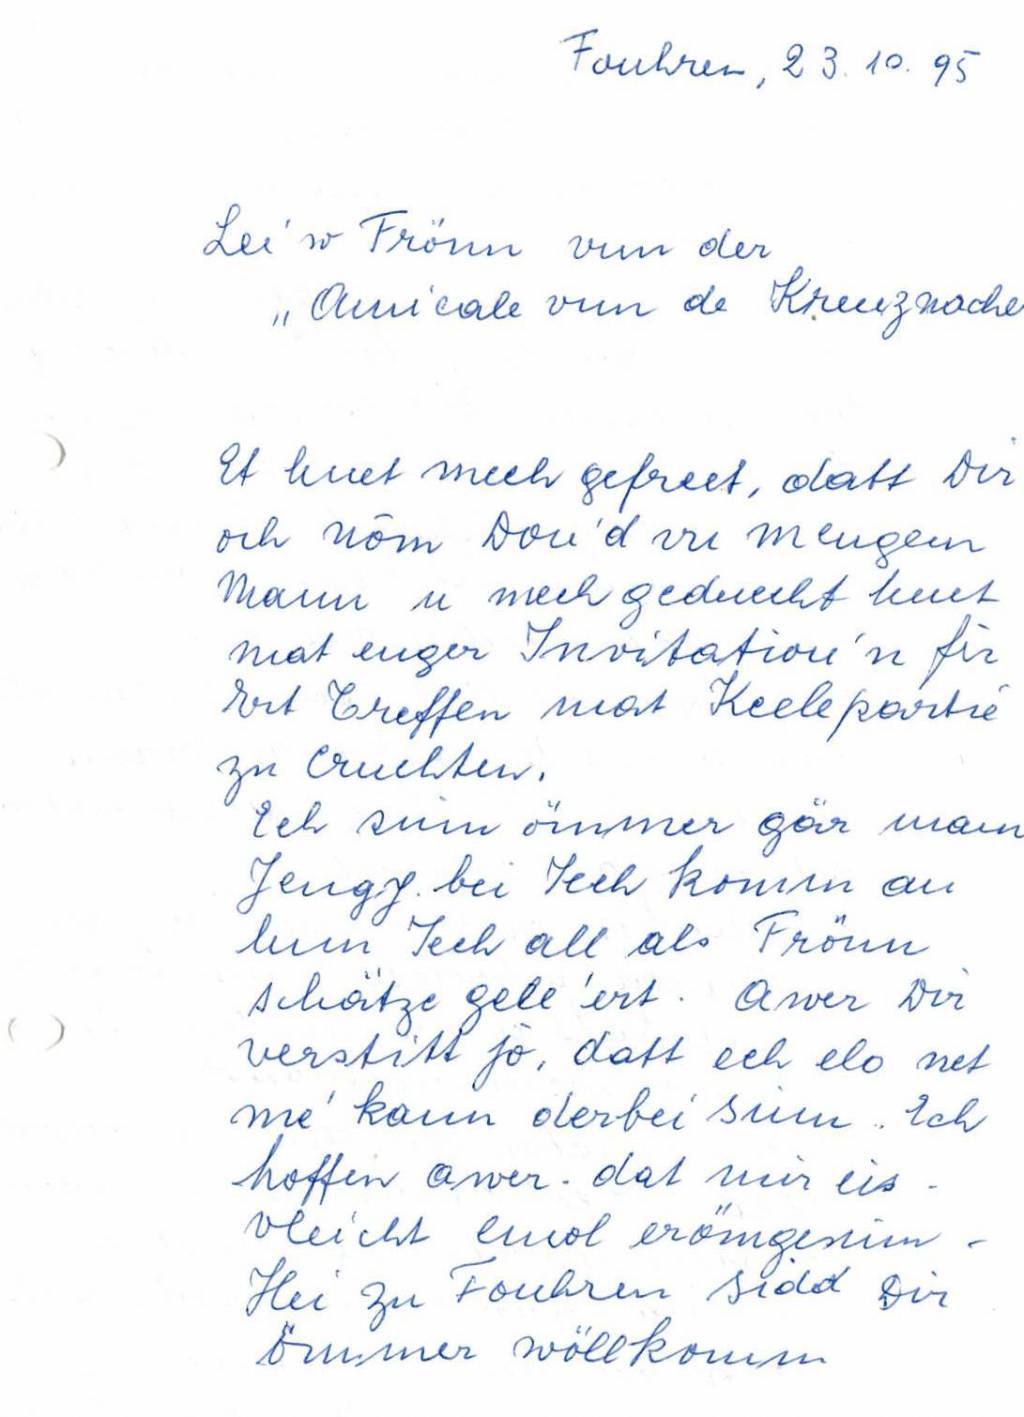 Fouhren, 23.10.95
Lei'w Frönn vun der
„Amicale vun de Kreuznacher
Et huet mech gefreet, datt Dir
och nôm Dou'd vu mengem
Mann u mech geduecht huet
mat enger Invitatiou'n fir
Ert Treffen mat Keelepartié
zu Cruchten.
Ech sinn ömmer gär mam
Jengy bei Iech komm an
hun Iech all als Frönn
schätze gelé'ert. Awer Dir
verstitt jo, datt ech elo net
mé' kann derbei sinn. Ech
hoffen awer. dat mir eis -
vleicht emol erömgesinn -
Hei zu Fouhren sidd Dir
ömmer wöllkomm